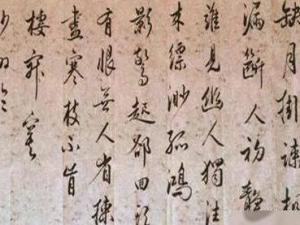 缺月掛疎桐
漏斷人初靜
誰見幽人獨往
來縹渺孤鴻
影驚起卻回頭
有恨無人省揀
盡寒枝不肯
棲寂寞
沙洲冷